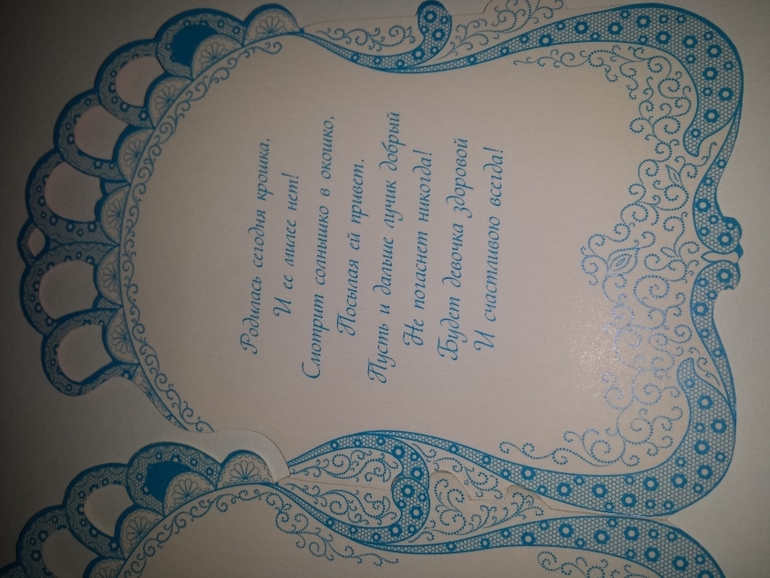 Родилась сегодня крошка,
И ее милее нет!
Смотрит солнышко в окошко,
Посылая ей привет.
Пусть и дальше лучик добрый
Не погаснет никогда!
Будет девочка здоровой
И счастливою всегда!